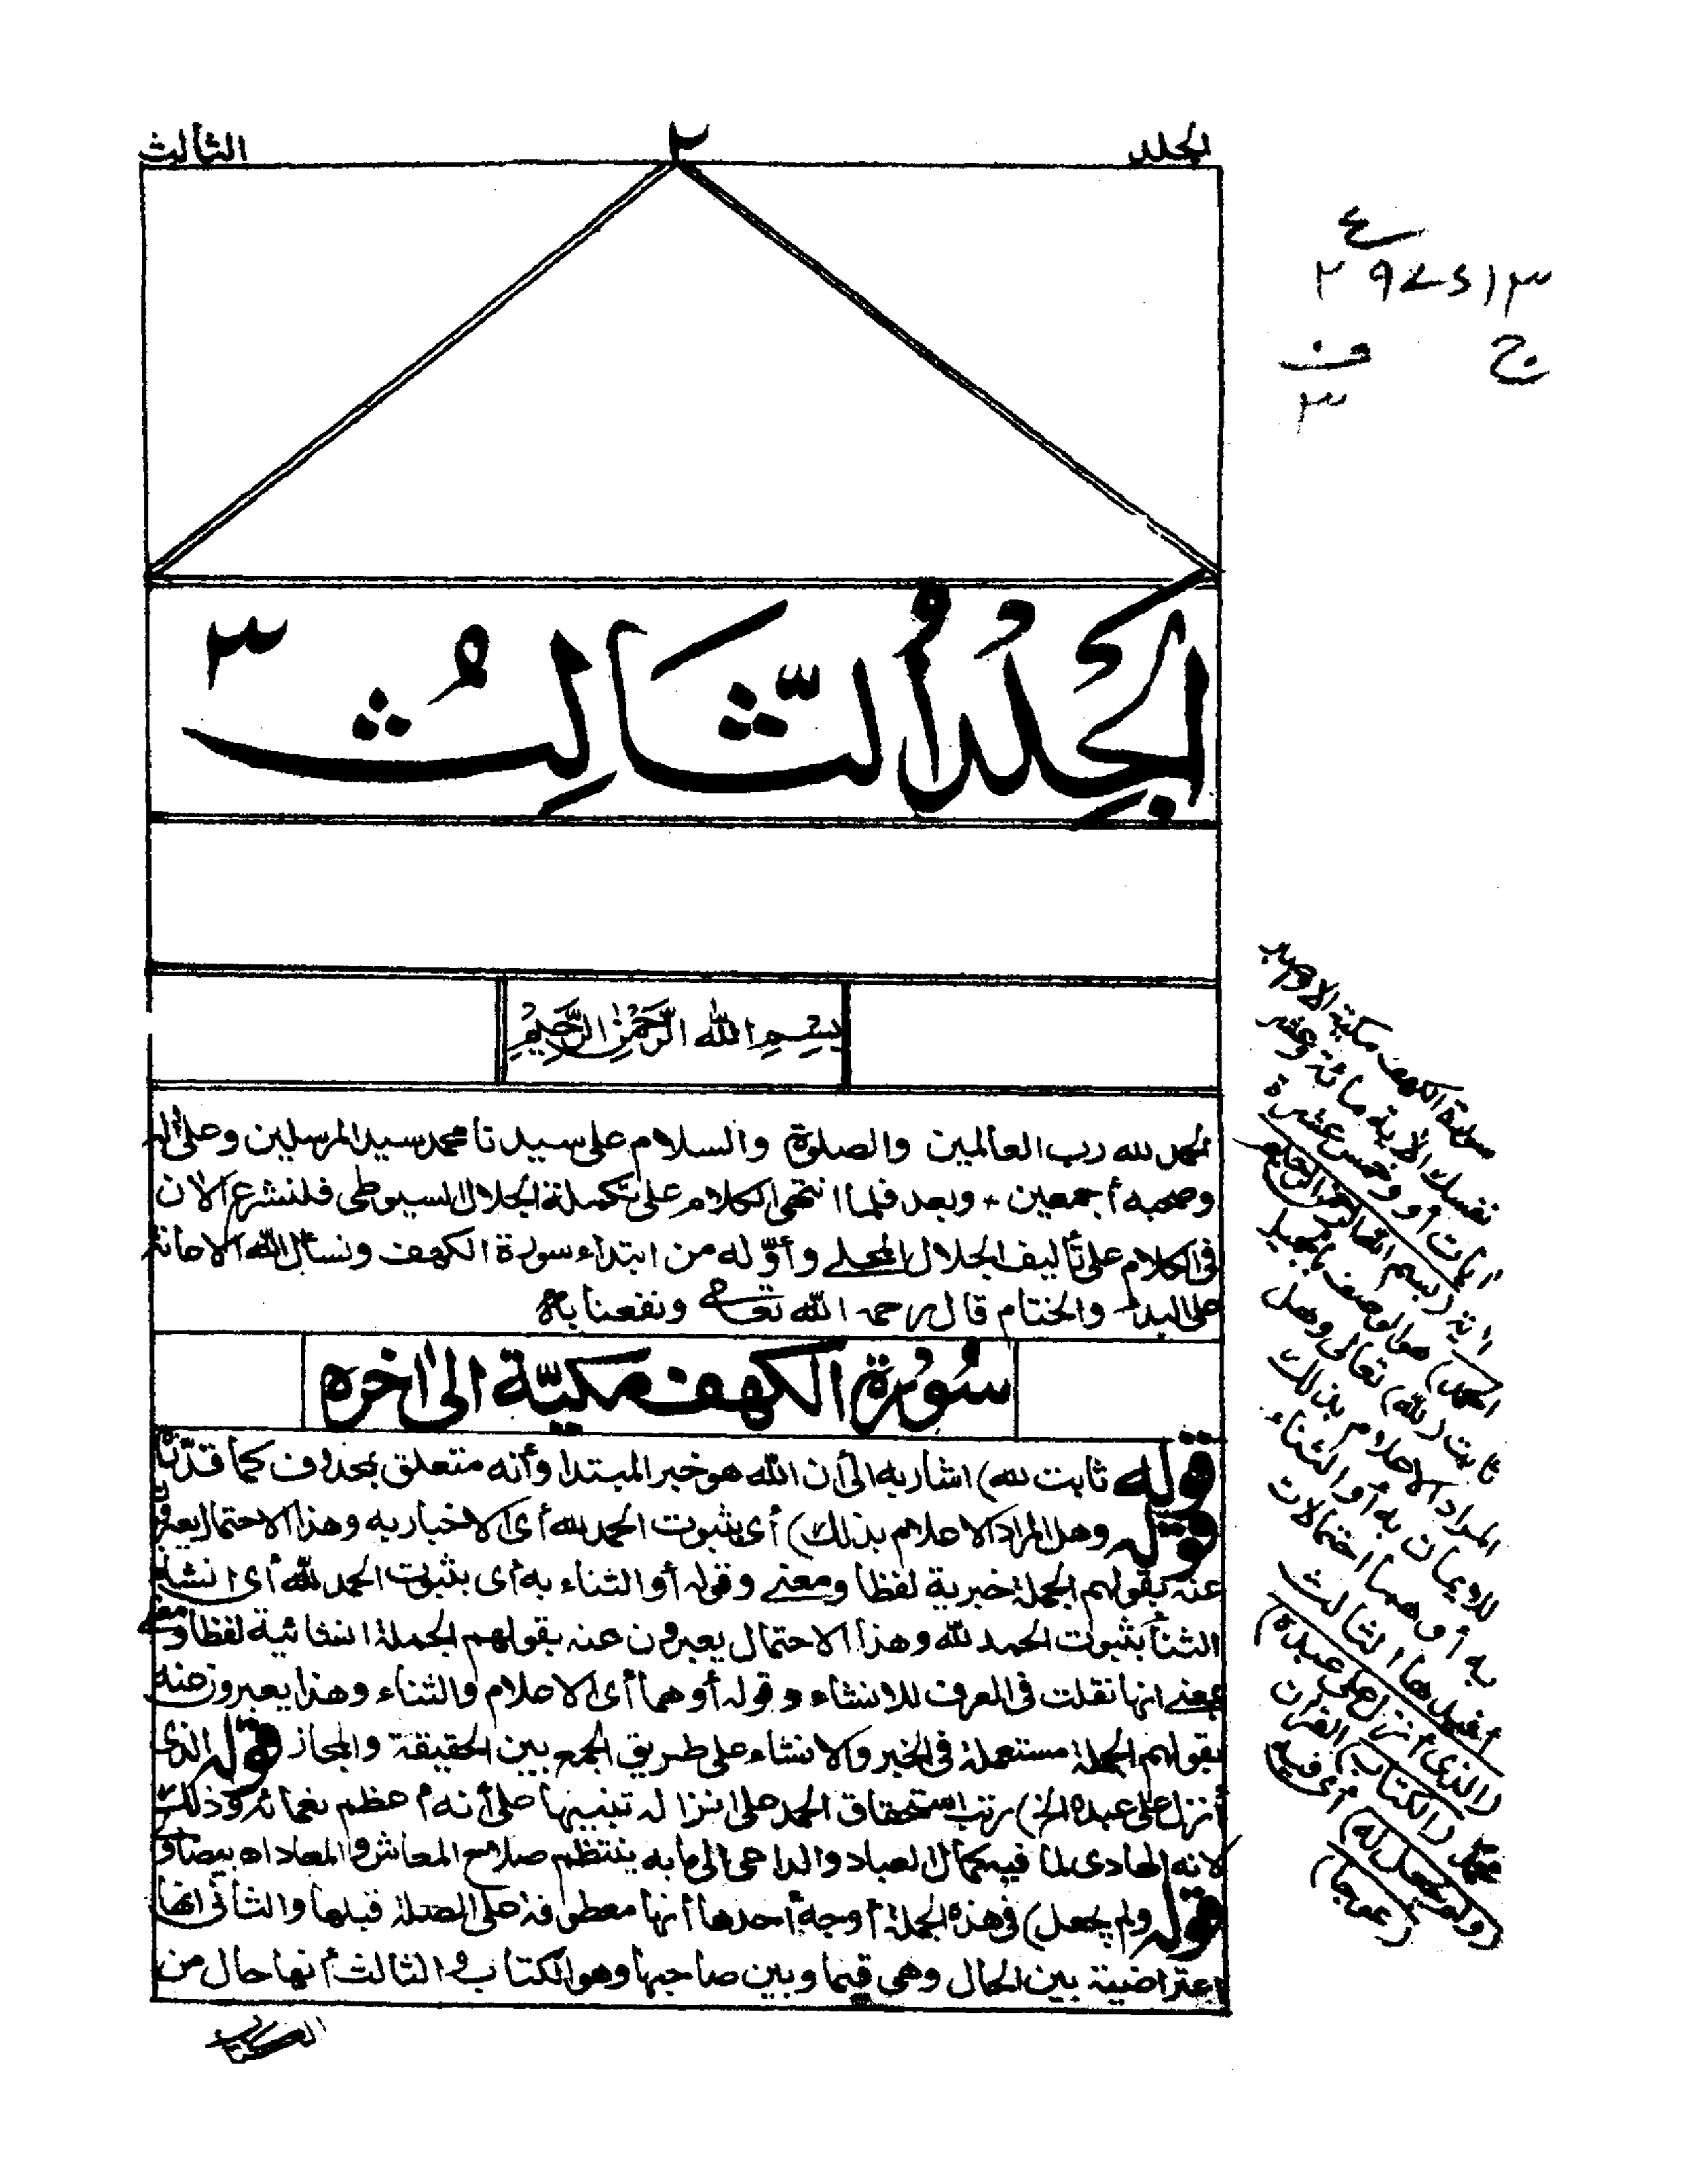 الجلد ٢ الثالث
ع
٢٩٧٤١٣
ج ف
٣
الجِلدُ الثَّالِثُ ٣
بِسْمِ اللّٰهِ الرَّحْمٰنِ الرَّحِيْمِ
الحمد لله رب العالمين والصلوة والسلام على سيدنا محمد سيد المرسلين وعلى أله
وصحبه أجمعين ٭ وبعد فلما انتهى الكلام على تكملة الجلال السيوطى فلنشرع الان
فى الكلام على تأليف الجلال المحلى وأوّله من ابتداء سورة الكهف ونسأل الله الاعانة
على البدا والختام قال رحمه الله تعالى ونفعنا به
سُوُرة الكهف مكيّة الى اخره
قوله ثابت لله) اشار به الى أن الله هو خبر المبتدا وأنه متعلق بمحذوف كما قدّرنا
قوله وهل المراد الاعلام بذلك) أى بثبوت الحمد لله أى الاخبار به وهذا الاحتمال يعبرون
عنه بقولهم الجملة خبرية لفظا ومعنى وقوله أو الثناء به أى بثبوت الحمد لله أى انشاء
الثنأ بثبوت الحمد لله وهذا الاحتمال يعبرون عنه بقولهم الجملة انشائية لفظا ومعنى
بمعنى انها نقلت فى العرف للانشاء وقوله أو هما أى الاعلام والثناء وهذا يعبرون عنه
بقولهم الجملة مستعملة فى الخبر والانشاء على طريق الجمع بين الحقيقة والمجاز قوله الذى
أنزل على عبده الخ) رتب استحقاق الحمد على انزاله تنبيها على أنه أعظم نعمائه وذلك
لانه الهادى لما فيه كمال العباد والداعى الى ما به ينتظم صلاح المعاش والمعاد اه بيضاوى
قوله ولم يجعل) فى هذه الجملة أوجه أحدها أنها معطوفة على الصلة قبلها والثانى انها
اعتراضية بين الحال وهى قيما وبين صاحبها وهو الكتاب والثالث أنها حال من
الكتاب
سورة الكهف مكية الا واصبر
نفسك الاية مائة وعشر
ايات أو وخمس عشرة
اية (بسم الله الرحمن الرحيم
الحمد) هو الوصف بالجميل
ثابت (لله) تعالى وهل
المراد الاعلام بذلك
للايمان به أو الثناء
به أو هما احتمالات
أفيدها الثالث
(الذى أنزل على عبده)
محمد (الكتاب) القران
(ولم يجعل له) أى فيه
(عوجا)